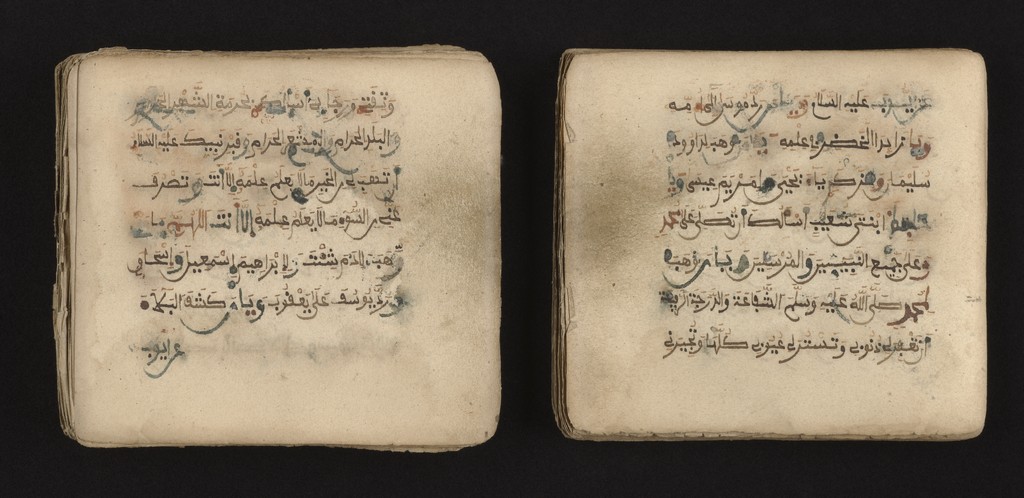 وثقتي ورجاءي أسألك بحرمة الشهر الحرام
والبلد الحرام والمشعر الحرام وقبر نبيك عليه السلام
أن تهب لي من الخير ما لا يعلم علمه إلا أنت وتصرف
عني من السوء ما لا يعلم علمه إلا أنت اللهم يا من
وهب لادم شيث ولإبراهيم إسمعيل وإسحاق
ورد يوسف على يعقوب ويا من كشف البلاء
عن أيوب
عن أيوب عليه السلام ويا من رد موسى إلى أمه
ويا زايد الخضر في علمه ويا من وهب لداوود
سليمان ولزكرياء يحيى ولمريم عيسى ويا
حافظ ابنتي شعيب أسألك أن تصلي على محمد
وعلى جميع النبيئين والمرسلين ويا من وهب
لمحمد صلى الله عليه وسلم الشفاعة والدرجة
أن تغفر لي ذنوبي وتستر لي عيوبي كلها وتجيرني